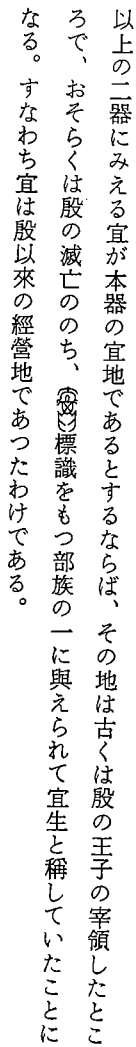 以上の二器にみえる宜が本器の宜地であるとするならば、その地は古くは殷の王子の宰領したとこ
ろで、おそらくは殷の滅亡ののち、標識をもつ部族の一に與えられて宜生と稱していたことに
なる。すなわち宜は殷以來の經營地であつたわけである。